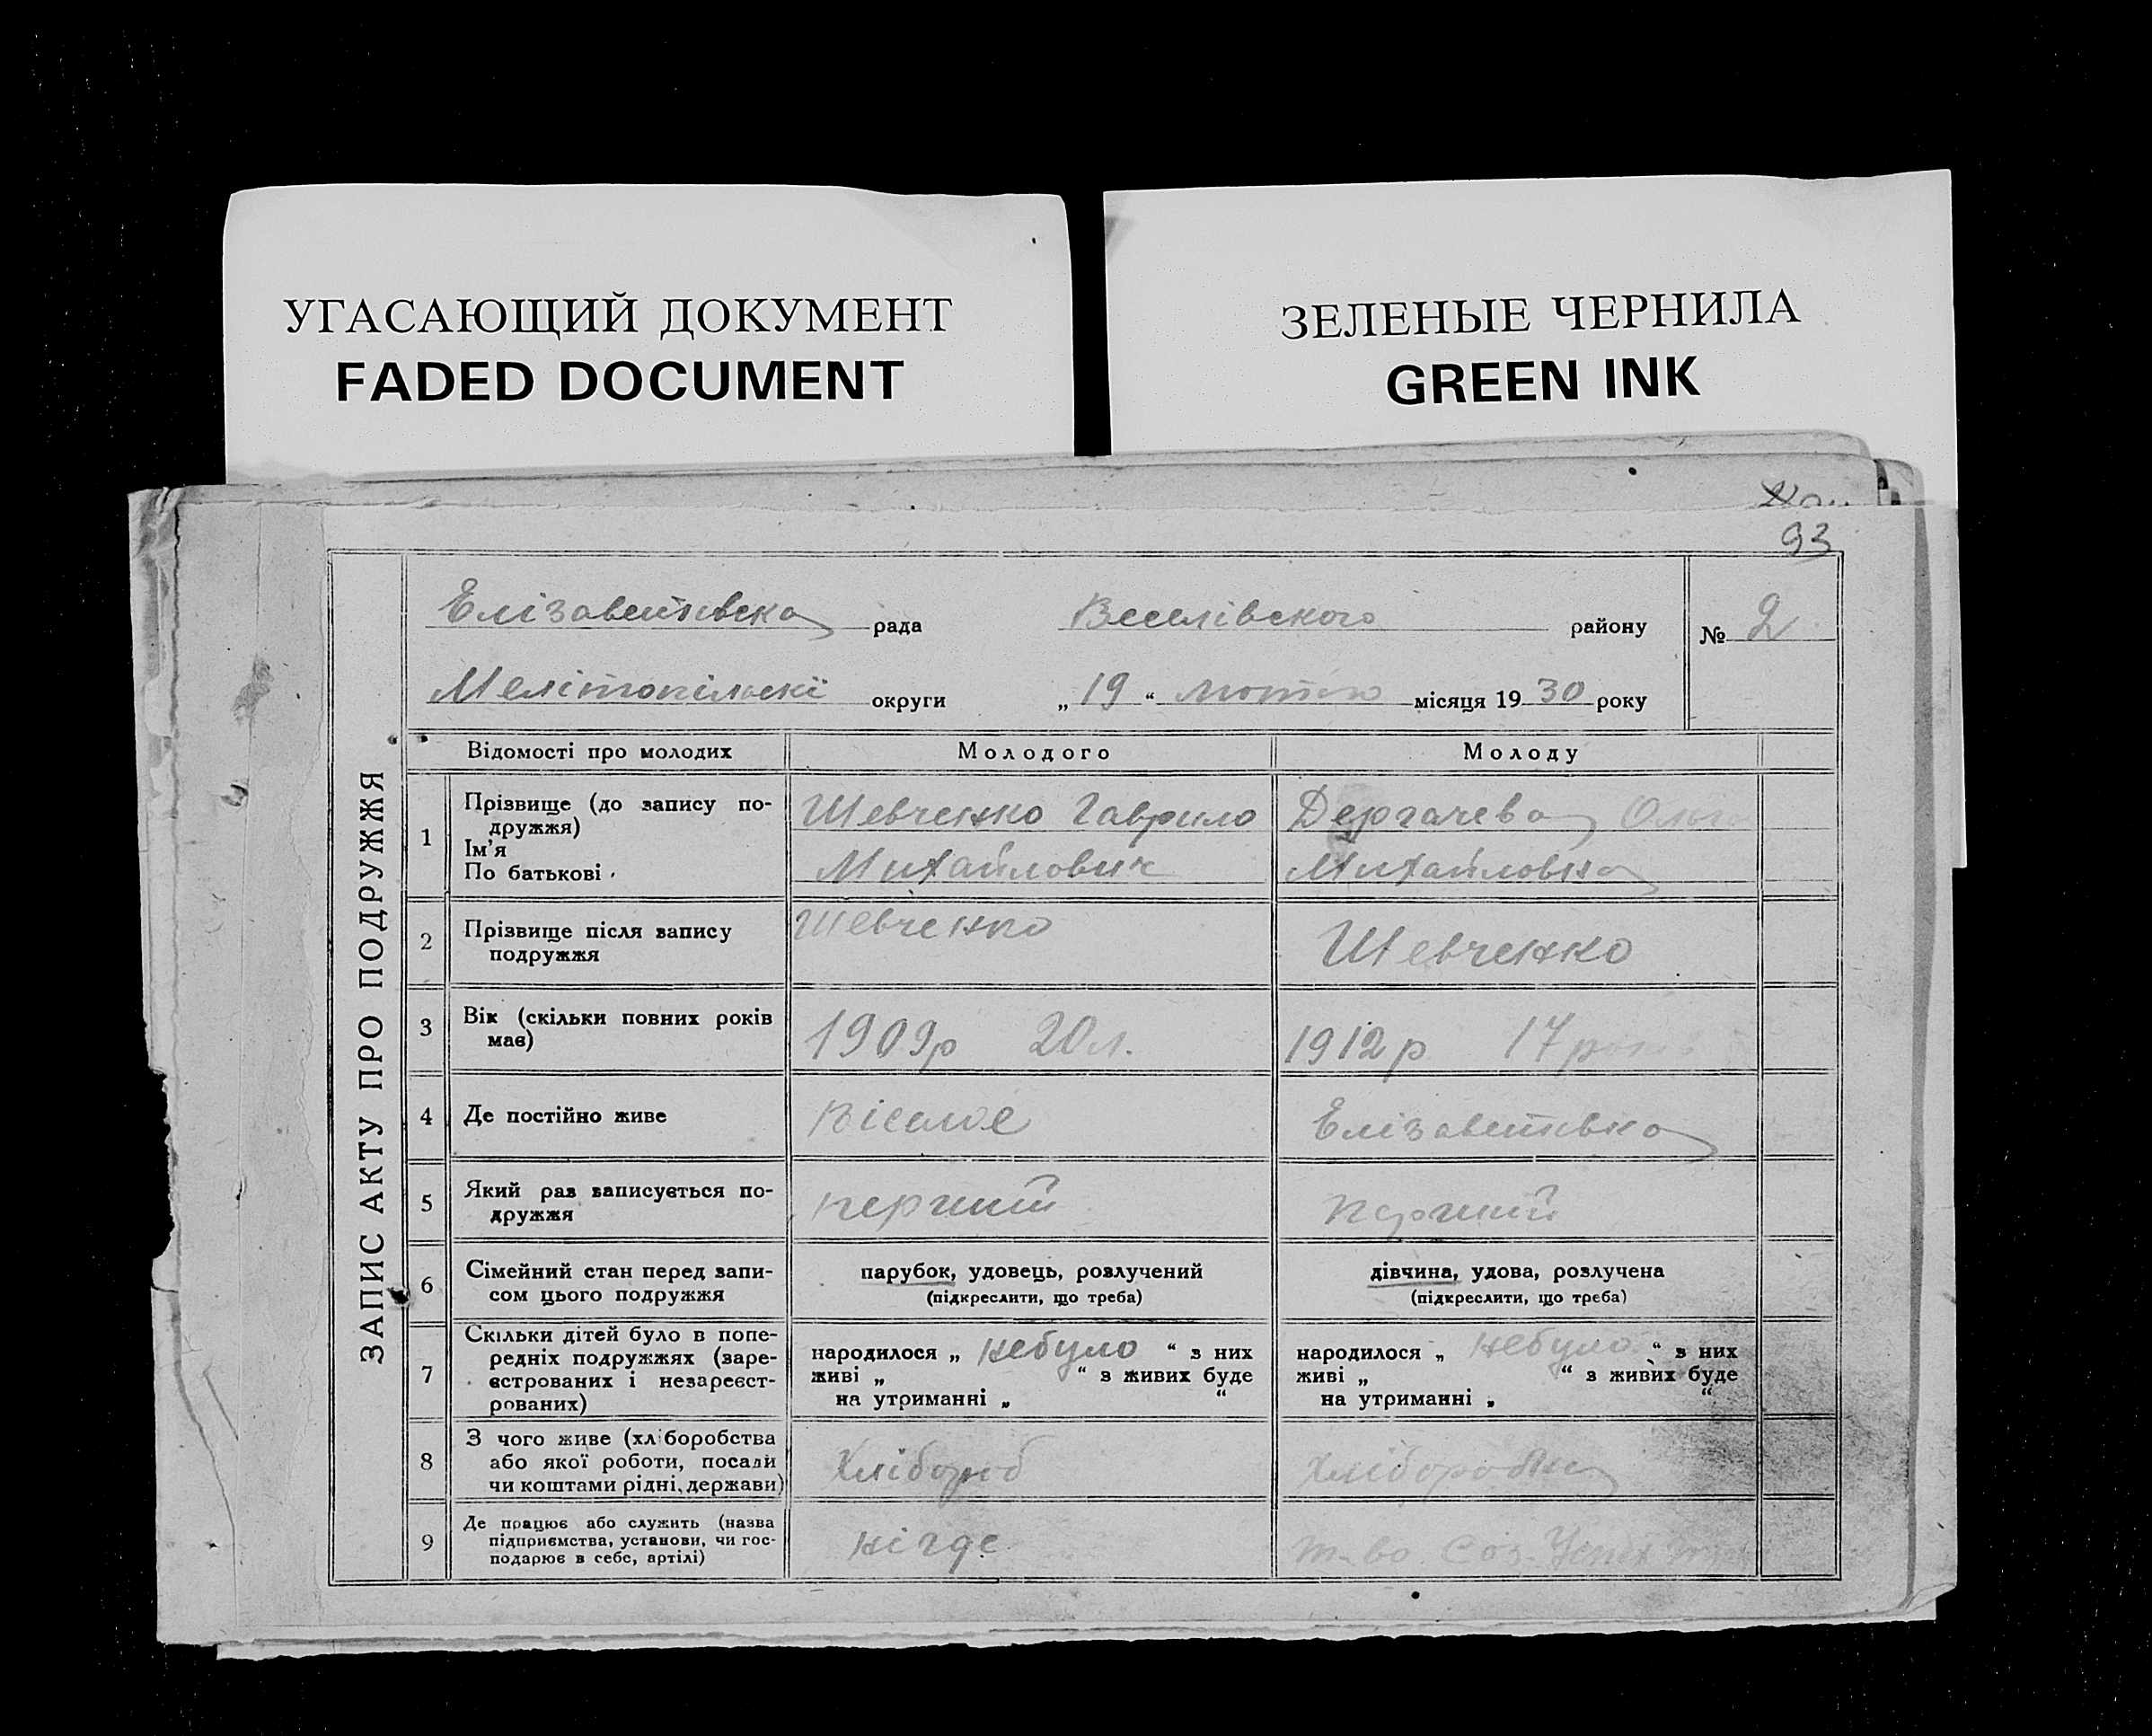 УГАСАЮЩИЙ ДОКУМЕНТ
FADED DOCUMENT
ЗЕЛЕНЫЕ ЧЕРНИЛА
GREEN INK
93
ЗАПИС АКТУ ПРО ПОДРУЖЖЯ
Елізаветівска рада Веселівского району № 2
Мелітопільскї округи „ 19 “ лютого місяця 19 30 року
Відомості про молодих Молодого Молоду
1 Прізвище (до запису по-
дружжя)
Ім'я
По батькові
Шевченко Гаврило
Михайлович
Дергачева
Михайловна
2 Прізвище після запису
подружжя
Шевченко
Шевченко
3 Вік (скільки повних років
має)
1909р 20л.
1912р 17
4 Де постійно живе
Віселе
Елізаветівка
5 Який раз записується по-
дружжя
перший
перший
6 Сімейний стан перед запи-
сом цього подружжя
парубок, удовець, розлучений
(підкреслити, що треба)
дівчина, удова, розлучена
(підкреслити, що треба)
7 Скільки дітей було в попе-
редніх подружжях (заре-
єстрованих і незареєст-
рованих)
народилося „ небуло “ з них
живі „ “ з живих буде
на утриманні „ “
народилося „ небуло “ з них
живі „ “ з живих буде
на утриманні „ “
8 З чого живе (хліборобства
або якої роботи, посади
чи коштами рідні, держави)
Хлібороб
Хліборобка
9 Де працює або служить (назва
підприємства, установи, чи гос-
подарює в себе, артілі)
нігде
т-во Соз.